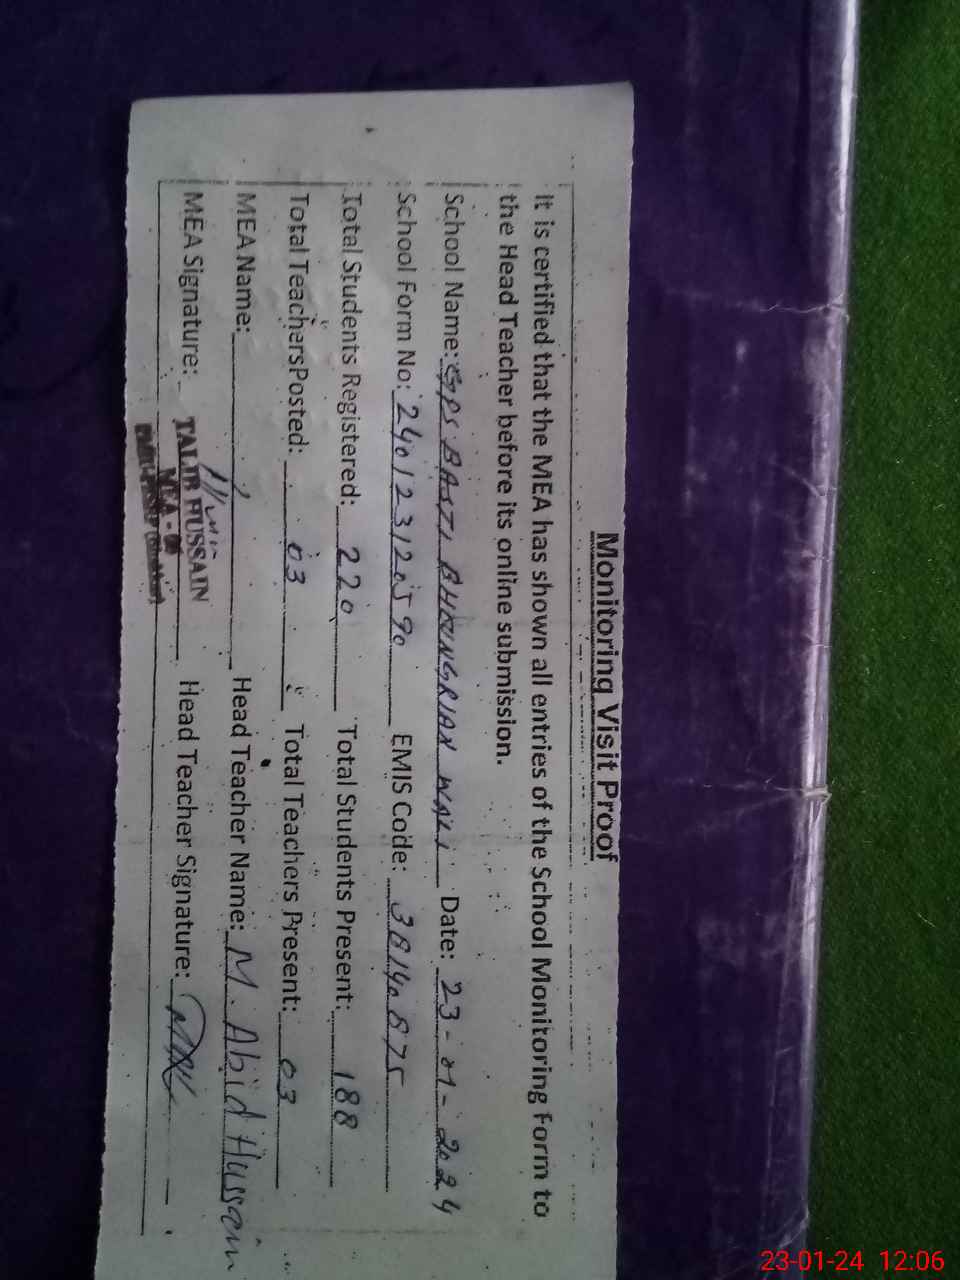 Monitoring Visit Proof
It is certified that the MEA has shown all entries of the School Monitoring Form to
the Head Teacher before its online submission.
School Name: GPS BASTI BHRNGRIAN WALI Date: 23-01-2024
School Form No: 240123120590 EMIS Code: 38140875
Total Students Registered: 220 Total Students Present: 188
Total Teachers Posted: 03 Total Teachers Present: 03
MEA Name: Head Teacher Name: M. Abid Hussain
MEA Signature: Head Teacher Signature:
TALIB HUSSAIN
MEA -
23-01-24 12:06